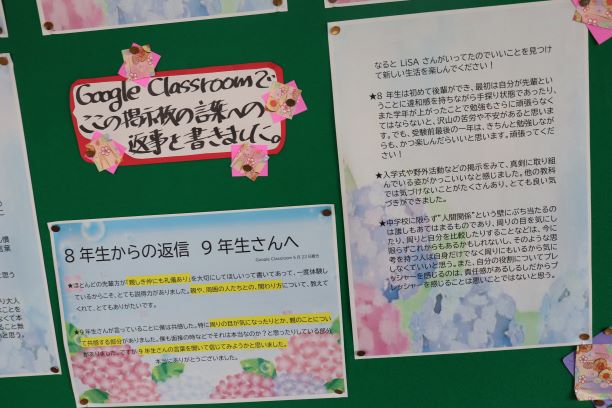 Google Classroomで
この掲示板の言葉への
返事を書きました。
8年生からの返信　9年生さんへ
Google Classroom 5月22日締切
★ほとんどの先輩方が「親しき仲にも礼儀あり」を大切にしてほしいって書いてあって、一度体験し
ているからこそ、とても説得力がありました。親や、周囲の人たちとの、関わり方について、教えて
くれて、とてもありがたいです。
★9年生さんが言っていることに僕は共感した。特に周りの目が気になったりとか、親のことについ
て共感する部分がありました。僕も面接の時などでそれは本当なのか？と思ったりしている部分
がありました。ですが9年生さんの言葉を聞いて信じてみようかと思いました。
本当にありがとうございました。
なると LiSA さんがいってたのでいいことを見つけ
て新しい生活を楽しんでください！
★8 年生は初めて後輩ができ、最初は自分が先輩とい
うことに違和感を持ちながら手探り状態であったり、
また学年が上がったことで勉強もさらに頑張らなく
てはならないと、沢山の苦労や不安があると思いま
す。でも、受験前最後の一年は、きちんと勉強しなが
らも、かつ楽しんだらいいと思います。頑張ってくだ
さい！
★入学式や野外活動などの掲示をみて、真剣に取り組
んでいる姿がかっこいいなと感じました。他の教科
では気づけないことがたくさんあり、とても良い気
づきができました。
★中学校に限らず"人間関係"という壁にぶち当たるのは
誰しもあてはまるものであり、周りの目を気にし
たり、周りと自分を比較したりすることなどは、今に
限らずこれからもあるかもしれないし、そのような思
考を持つ人は自身だけでなく周りにもいるから気に
しなくていいと思う。また、自分の役割についてプレ
ッシャーを感じるのは、責任感があるしるしだからプ
レッシャーを感じることは悪いことではないと思う。